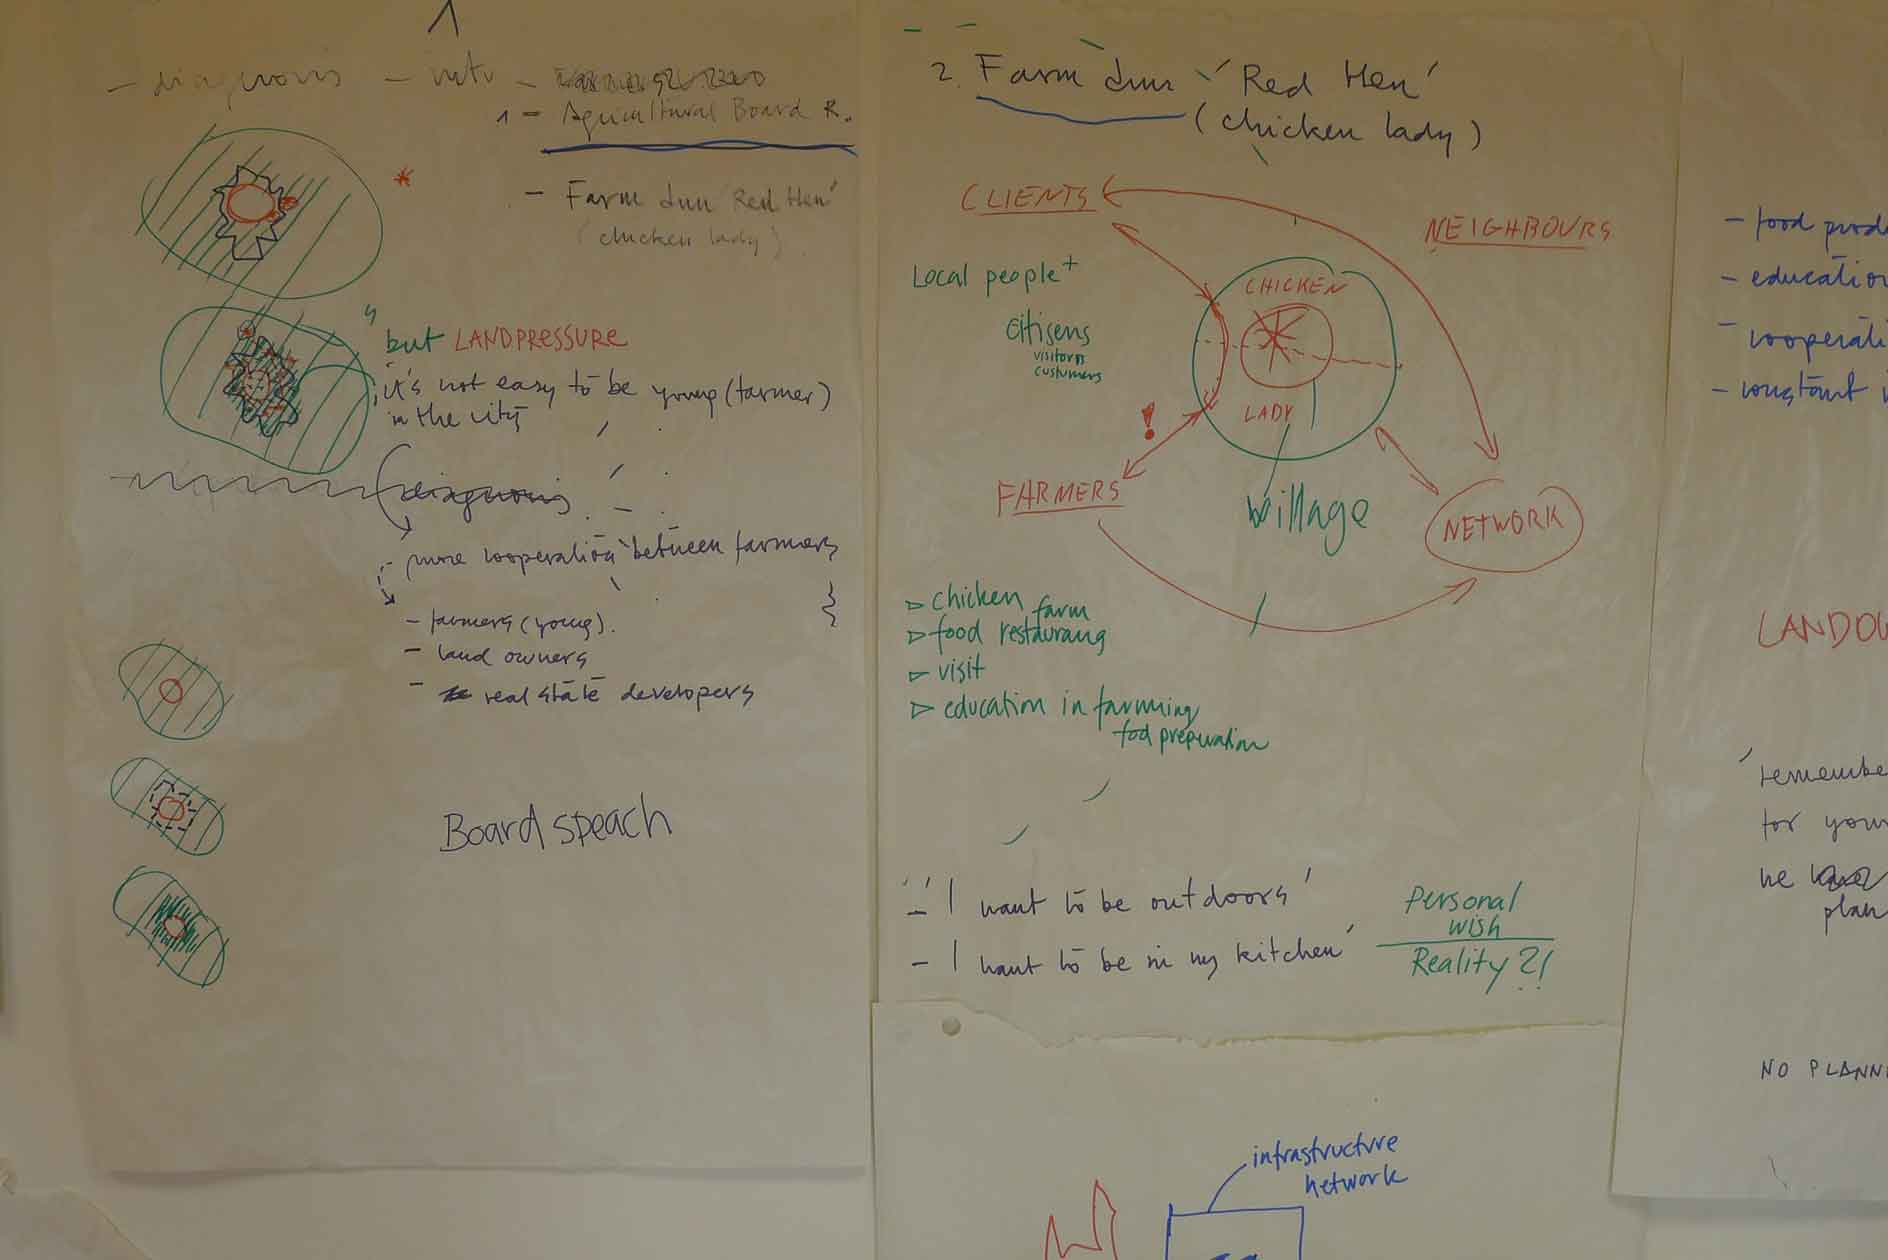 1
- diagnosis -
1 - Agricultural Board R.
- Farm Inn 'Red Hen'
(chicken lady)
but LANDPRESSURE
it's not easy to be young (farmer)
in the city
diagnosis
- more cooperation between farmers
- farmers (young).
- land owners
- real state developers
Board speach
2. Farm Inn 'Red Hen'
(chicken lady)
CLIENTS
NEIGHBOURS
Local people +
citisens
visitors
custumers
CHICKEN
LADY
!
FARMERS
village
NETWORK
chicken farm
food restaurang
visit
education in farming
fod preparation
- 'I want to be outdoors'
- I want to be in my kitchen'
Personal
wish
Reality ?!
infrastructure
network
- food prod
- education
- cooperati
- constant
LANDOW
'remember
for your
he
plan
NO PLANN